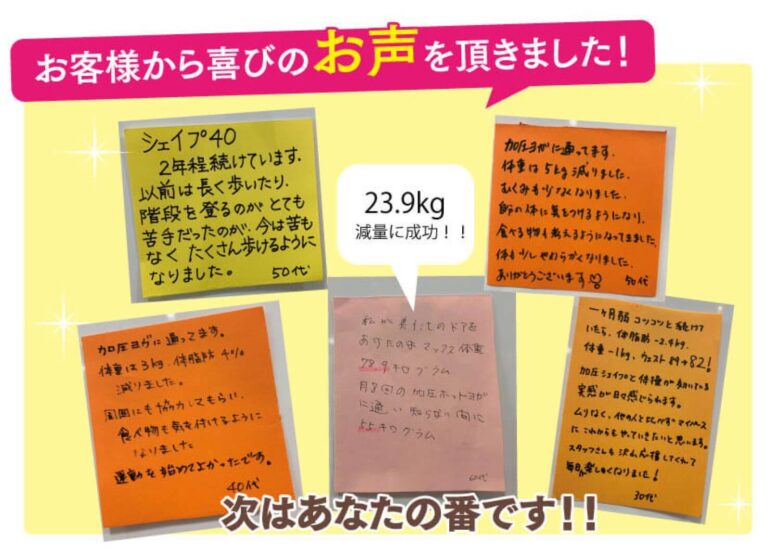 お客様から喜びのお声を頂きました！
シェイプ40
2年程続けています。
以前は長く歩いたり、
階段を登るのがとても
苦手だったのが、今は苦も
なくたくさん歩けるように
なりました。 50代
23.9kg
減量に成功！！
加圧ヨガに通ってます。
体重は5kg減りました。
むくみも少なくなりました。
自分の体に気をつけるようになり、
食べる物も考えるようになってきました。
体も少しやわらかくなりました。
ありがとうございます 50代
加圧ヨガに通ってます。
体重は3kg、体脂肪 4%
減りました。
周囲にも協力してもらい、
食べ物も気を付けるように
なりました
運動を始めてよかったです。
40代
私が 美 たものドアを
あけたのは マックス体重
78.9キログラム
月8回の加圧ホットヨガ
に通い 知らない間に
55キログラム
60代
一ヶ月弱 コツコツと続けて
いたら、体脂肪 -2.4kg、
体重 -1kg、ウエスト 89→82!
加圧シェイプと体操が効いている
実感が日々感じられます。
ムリなく、他の人と比べずマイペース
にこれからもやっていきたいと思います。
スタッフさんも沢山応援してくれて
毎日が楽しくなりました！
30代
次はあなたの番です!!